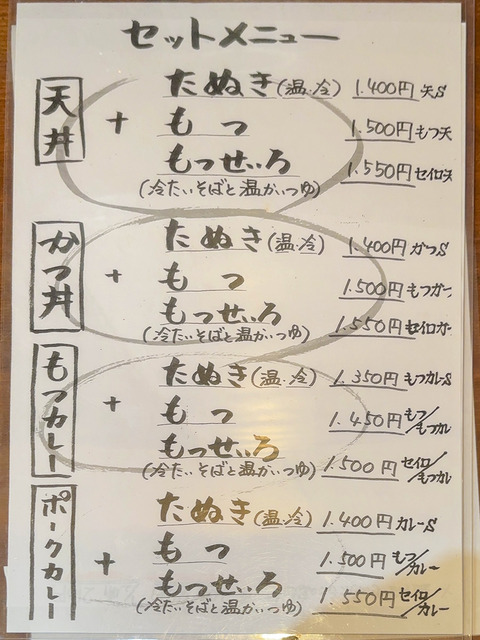 セットメニュー
天丼
+
たぬき(温・冷) 1.400円 天S
もつ 1.500円 もつ天
もつせいろ 1.550円 セイロ天
(冷たいそばと温かいつゆ)
かつ丼
+
たぬき(温・冷) 1.400円 かつS
もつ 1.500円 もつかつ
もつせいろ 1.550円 セイロカツ
(冷たいそばと温かいつゆ)
もつカレー
+
たぬき(温・冷) 1.350円 もつカレーS
もつ 1.450円 もつ/もつカレ
もつせいろ 1.500円 セイロ/もつカレ
(冷たいそばと温かいつゆ)
ポークカレー
+
たぬき(温・冷) 1.400円 カレーS
もつ 1.500円 もつ/カレー
もつせいろ 1.550円 セイロ/カレー
(冷たいそばと温かいつゆ)